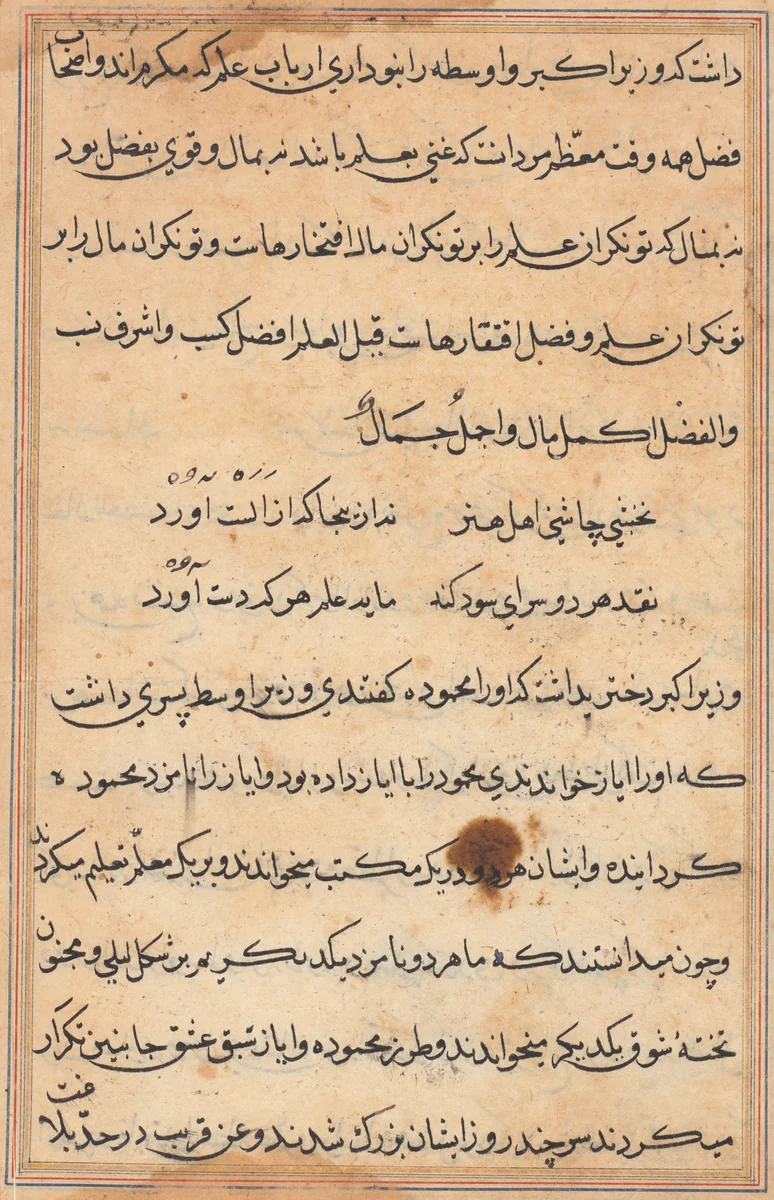 داشت که وزیر اکبر و اوسطه را بنوداري ارباب علم که مکرم اند و اصحاب
فضل همه وقت معظّم مرد انست که غني بعلم باشد نه بمال و قوي بفضل بود
نه بمنال که تونکران علم را بر تونکران مال افتخارهاست و تونکران مال را بر
تونکران علم و فضل افتقارهاست قیل العلم افضل کسب و اشرف نسب
والفضْل اکمل مال واجملُ جمَالٍ
نخشبي چاشني اهل هنر ندازینجا که از الست آورد
نقد هر دو سراي سود کند مایه علم هر که دست آورد
وزیر اکبر دختر یداشت که او را محموده کفتندي وزیر اوسط پسري داشت
که او را ایاز خواندندي محمود را با ایاز داده بود و ایاز را نامزد محموده
کردانیده و ایشان هر دو در یک مکتب میخواندند و بر یک معلّم تعلیم میکردند
و چون میدانستند که ما هر دو نامزد یکدیکریم بر شکل لیلي و مجنون
تختهٔ شوق یکدیکر میخواندند و طرز محموده و ایاز سبق عشق جانبین تکرار
میکردند سر چند روز ایشان بزرک شدند و عن قریب در حدّ بلاغت